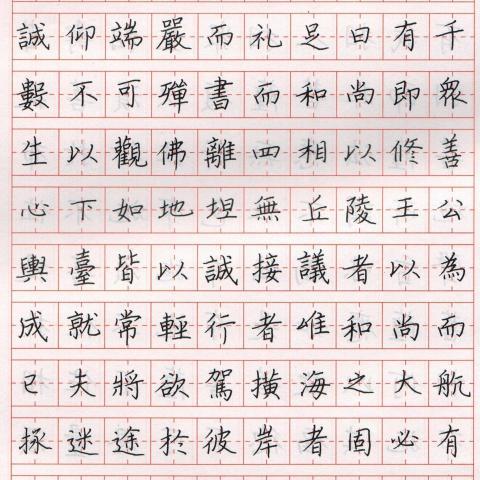 誠仰端嚴而礼足日有千
數不可殫書而和尚即衆
生以觀佛離四相以修善
心下如地坦無丘陵王公
輿臺皆以誠接議者以為
成就常輕行者唯和尚而
已夫將欲駕横海之大航
拯迷途於彼岸者固必有